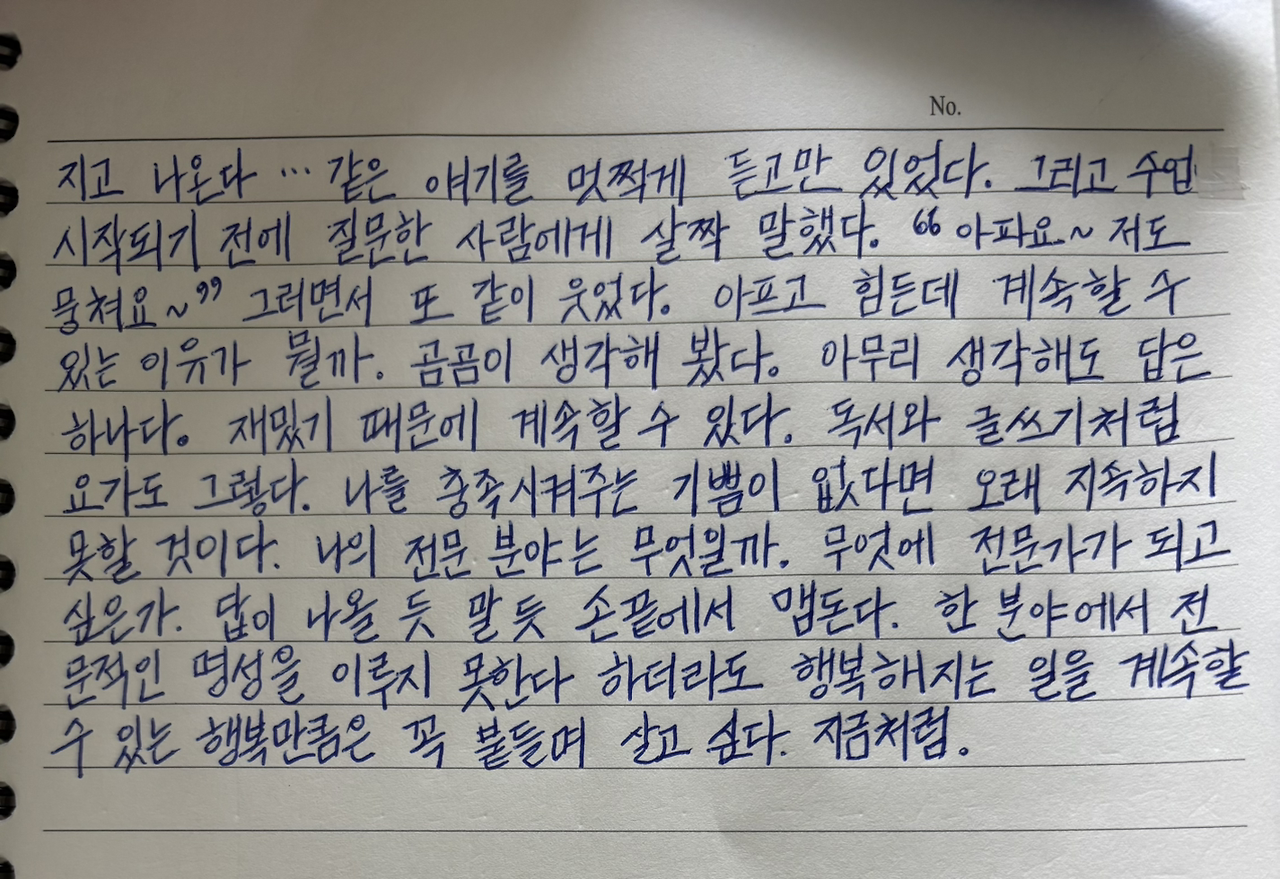 No.
지고 나온다 … 같은 얘기를 멋쩍게 듣고만 있었다. 그리고 수업
시작되기 전에 질문한 사람에게 살짝 말했다. “아파요~ 저도
뭉쳐요~” 그러면서 또 같이 웃었다. 아프고 힘든데 계속할 수
있는 이유가 뭘까. 곰곰이 생각해 봤다. 아무리 생각해도 답은
하나다. 재밌기 때문에 계속할 수 있다. 독서와 글쓰기처럼
요가도 그렇다. 나를 충족시켜주는 기쁨이 없다면 오래 지속하지
못할 것이다. 나의 전문 분야는 무엇일까. 무엇에 전문가가 되고
싶은가. 답이 나올 듯 말 듯 손끝에서 맴돈다. 한 분야에서 전
문적인 명성을 이루지 못한다 하더라도 행복해지는 일을 계속할
수 있는 행복만큼은 꼭 붙들며 살고 싶다. 지금처럼.